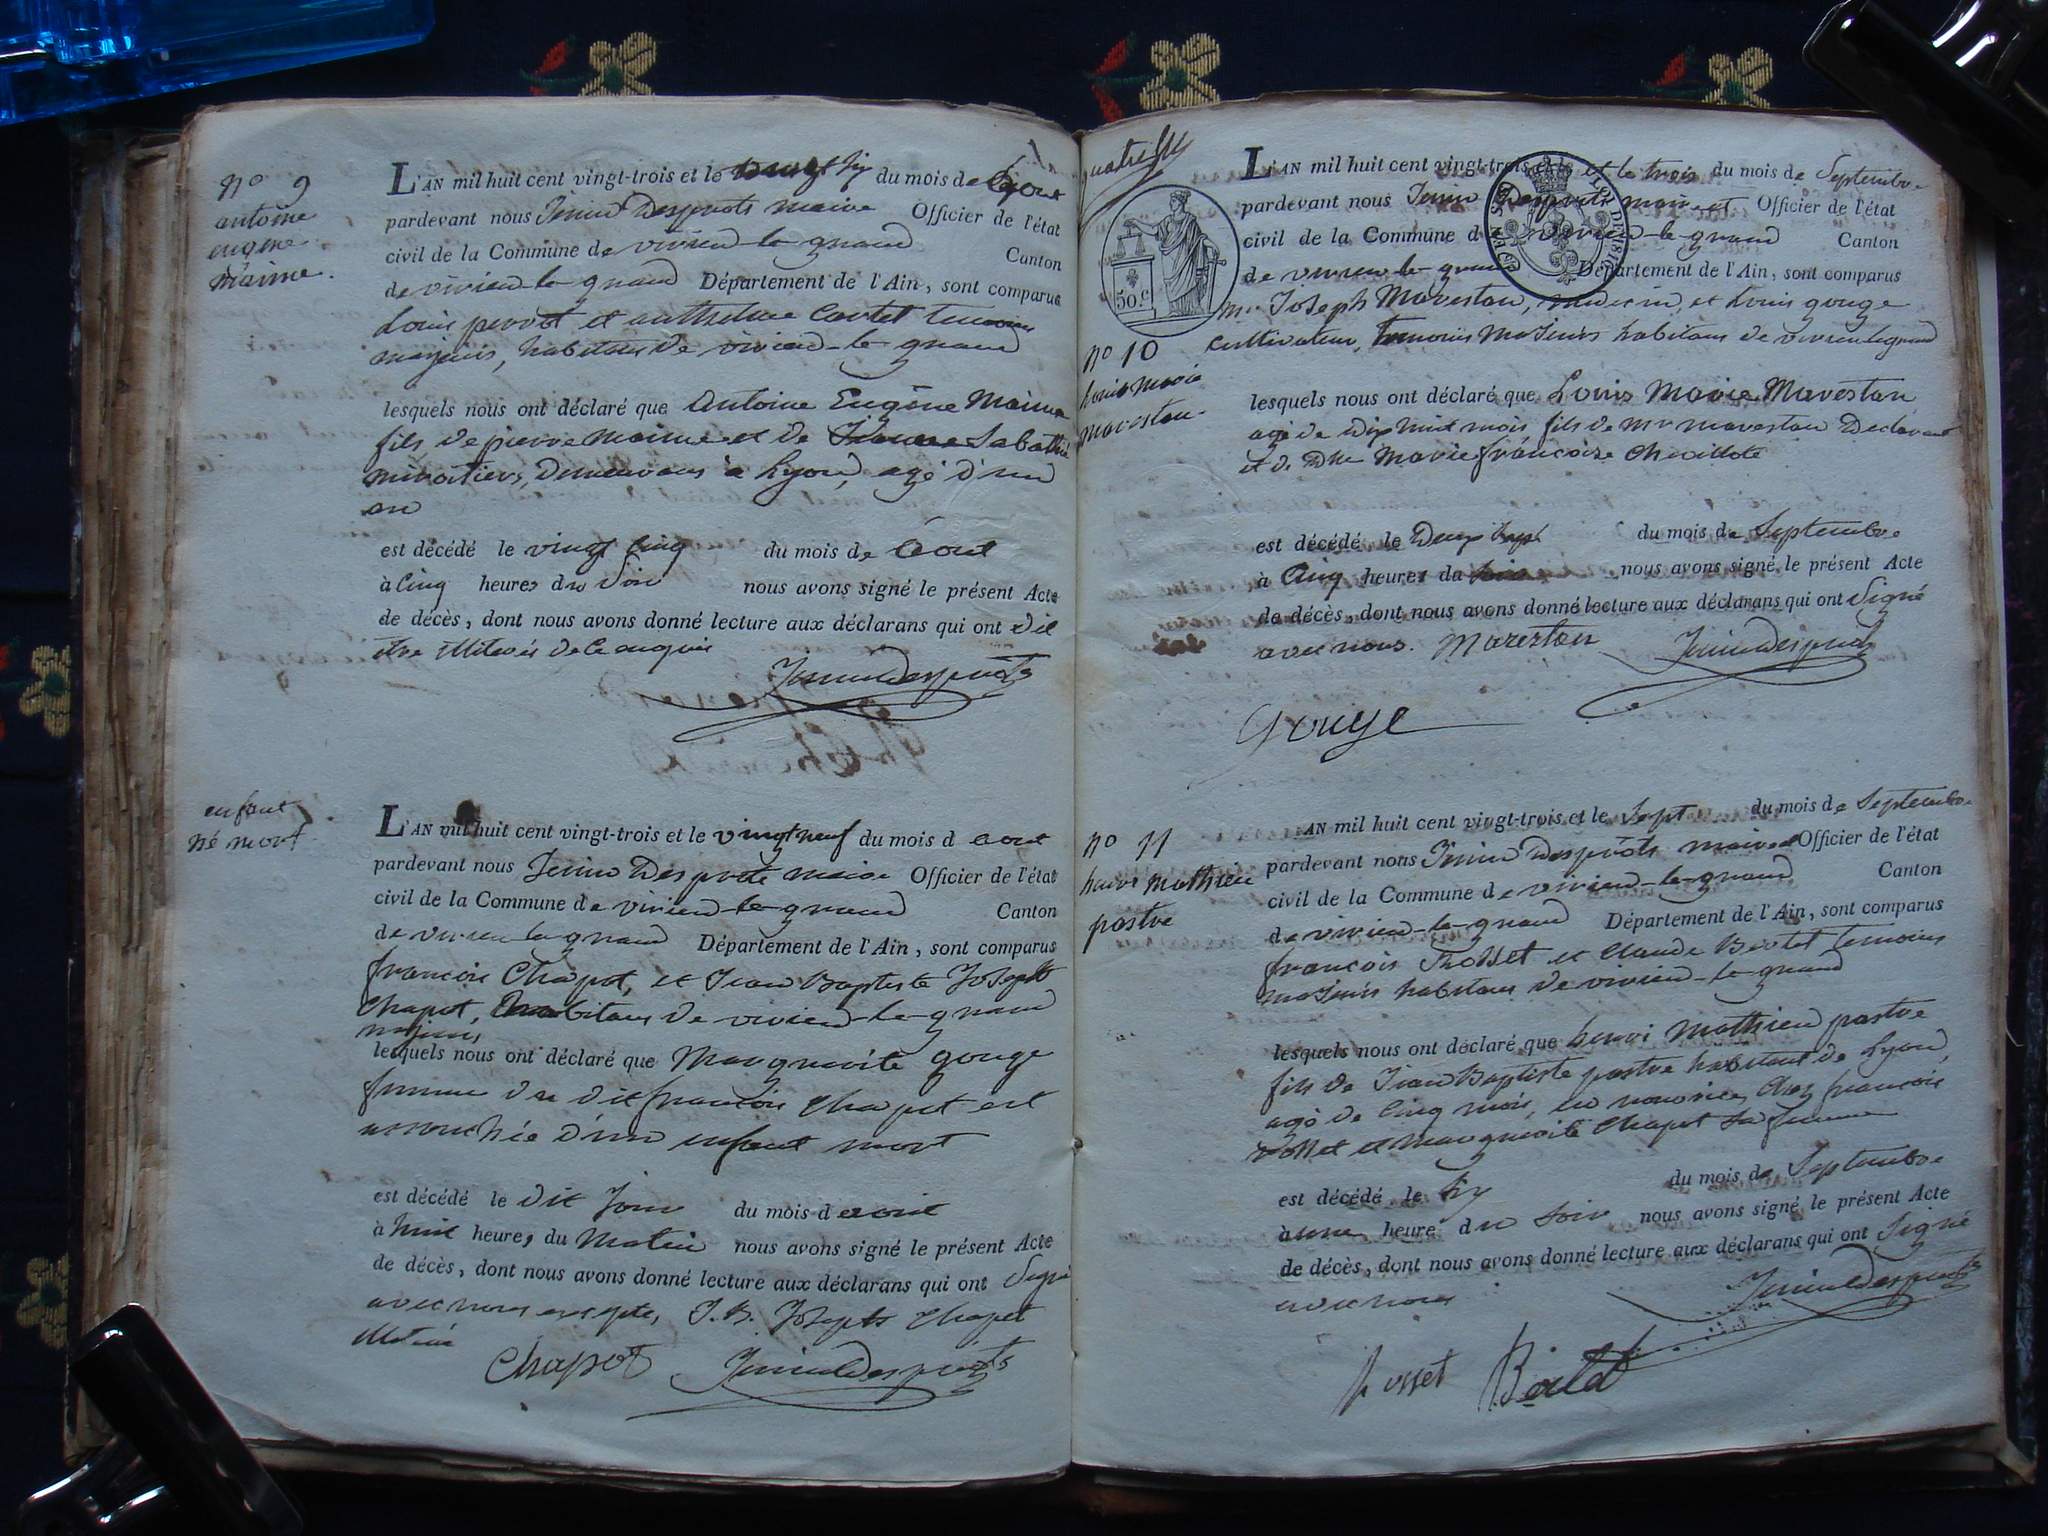 N° 9
antoine
eugene
Maime.
L'AN mil huit cent vingt-trois et le vingt six du mois de aout
pardevant nous Jenin Desprots maire Officier de l'état
civil de la Commune de virieu-le-grand
Canton
de virieu-le-grand Département de l'Ain, sont comparus
Louis perrot et anthelme Cartet temoins
majeurs, habitans de virieu-le-grand
lesquels nous ont déclaré que Antoine Eugène Maime
fils de pierre maime et de Sabathié
miroitiers, demeurans à Lyon, agé d'un
an
est décédé le vingt cinq du mois de aout
à cinq heures du soir nous avons signé le présent Acte
de décès, dont nous avons donné lecture aux déclarans qui ont dit
etre illiterés de ce enquis
Jenin Desprots
enfant
né mort
L'AN mil huit cent vingt-trois et le vingt neuf du mois d aout
pardevant nous Jenin Desprots maire Officier de l'état
civil de la Commune de virieu-le-grand
Canton
de virieu-le-grand Département de l'Ain, sont comparus
françois Chapot, et Jean Baptiste Joseph
Chapot, habitans de virieu-le-grand
majeurs,
lesquels nous ont déclaré que Marguerite gouge
femme du dit françois Chapot est
accouchée d'un enfant mort
est décédé le dit jour du mois d aout
à huit heures du matin nous avons signé le présent Acte
de décès, dont nous avons donné lecture aux déclarans qui ont signé
avec nous excepté, J. B. Joseph Chapot
illiteré
Chapot Jenin Desprots
quatre
50 c
N° 10
Louis marie
mareston
L'AN mil huit cent vingt-trois et le et le trois du mois de Septembre
pardevant nous Jenin Desprots maire et Officier de l'état
civil de la Commune de virieu-le-grand Canton
de virieu le grand Département de l'Ain, sont comparus
mr Joseph Mareston, médecin, et Louis gouge
cultivateur, temoins majeurs habitans de virieu legrand
lesquels nous ont déclaré que Louis Marie Mareston
agé de dix huit mois fils de mr mareston Declarant
et de Dme Marie françoise Chevillote
est décédé le du mois de Septembre
à cinq heures du soir nous avons signé le présent Acte
de décès, dont nous avons donné lecture aux déclarans qui ont signé
avec nous. Mareston Jenin Desprots
Gouge
N° 11
henri mathieu
pastre
L'AN mil huit cent vingt-trois et le sept du mois de Septembre
pardevant nous Jenin Desprots maire et Officier de l'état
civil de la Commune de virieu-le-grand Canton
de virieu-le-grand Département de l'Ain, sont comparus
françois Rosset et Claude Bertet temoins
majeurs habitans de virieu-le-grand
lesquels nous ont déclaré que henri mathieu pastre
fils de Jean Baptiste pastre habitant de Lyon,
agé de cinq mois, en nourrice, chez françois
rosset et marguerite Chapot sa femme
est décédé le six du mois de Septembre
à une heure du soir nous avons signé le présent Acte
de décès, dont nous avons donné lecture aux déclarans qui ont signé
avec nous
Jenin Desprots
Rosset